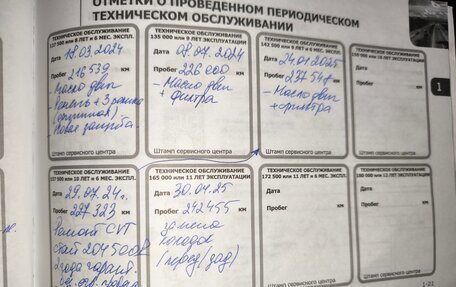 ОТМЕТКИ О ПРОВЕДЕННОМ ПЕРИОДИЧЕСКОМ
ТЕХНИЧЕСКОМ ОБСЛУЖИВАНИИ
ТЕХНИЧЕСКОЕ ОБСЛУЖИВАНИЕ
127 500 или 8 ЛЕТ и 6 МЕС. ЭКСПЛ.
18.03.2024
Пробег 216539 км
Масло двп
Ремень + 3 ролика
Новая защита
Штамп сервисного центра
ТЕХНИЧЕСКОЕ ОБСЛУЖИВАНИЕ
135 000 или 9 ЛЕТ ЭКСПЛУАТАЦИИ
Дата 08.07.2024
Пробег 226 000 км
– Масло двп
+ фильтра
Штамп сервисного центра
ТЕХНИЧЕСКОЕ ОБСЛУЖИВАНИЕ
142 500 или 9 ЛЕТ и 6 МЕС. ЭКСПЛ.
Дата 24.01.2025
Пробег 237547 км
– Масло двп
+ фильтра
Штамп сервисного центра
ТЕХНИЧЕСКОЕ ОБСЛУЖИВАНИЕ
Дата
Пробег км
Штамп сервисного центра
1
ТЕХНИЧЕСКОЕ ОБСЛУЖИВАНИЕ
157 500 или 10 ЛЕТ и 6 МЕС. ЭКСПЛ.
29.07.24г.
Пробег 227323 км
Ремонт CVT
стаит 204 500р
2 года гарант.
ТЕХНИЧЕСКОЕ ОБСЛУЖИВАНИЕ
165 000 или 11 ЛЕТ ЭКСПЛУАТАЦИИ
Дата 30.04.25
Пробег 242455 км
замена
колодок
/перед/зад/
ТЕХНИЧЕСКОЕ ОБСЛУЖИВАНИЕ
172 500 или 11 ЛЕТ и 6 МЕС. ЭКСПЛ.
Дата
Пробег км
Штамп сервисного центра
ТЕХНИЧЕСКОЕ ОБСЛУЖИВАНИЕ
180 000 или 12 ЛЕТ ЭКСПЛУАТАЦИИ
Дата
Пробег км
Штамп сервисного центра
1-21